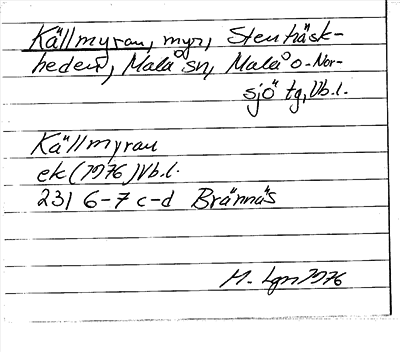 Källmyran, myr, Stenträsk-
heden, Malå sn, Malå o. Nor-
sjö tg, Vb.l.
Källmyran
ek (1976) Vb.l.
231 6-7 c-d Brännäs
M. Lgn 1976